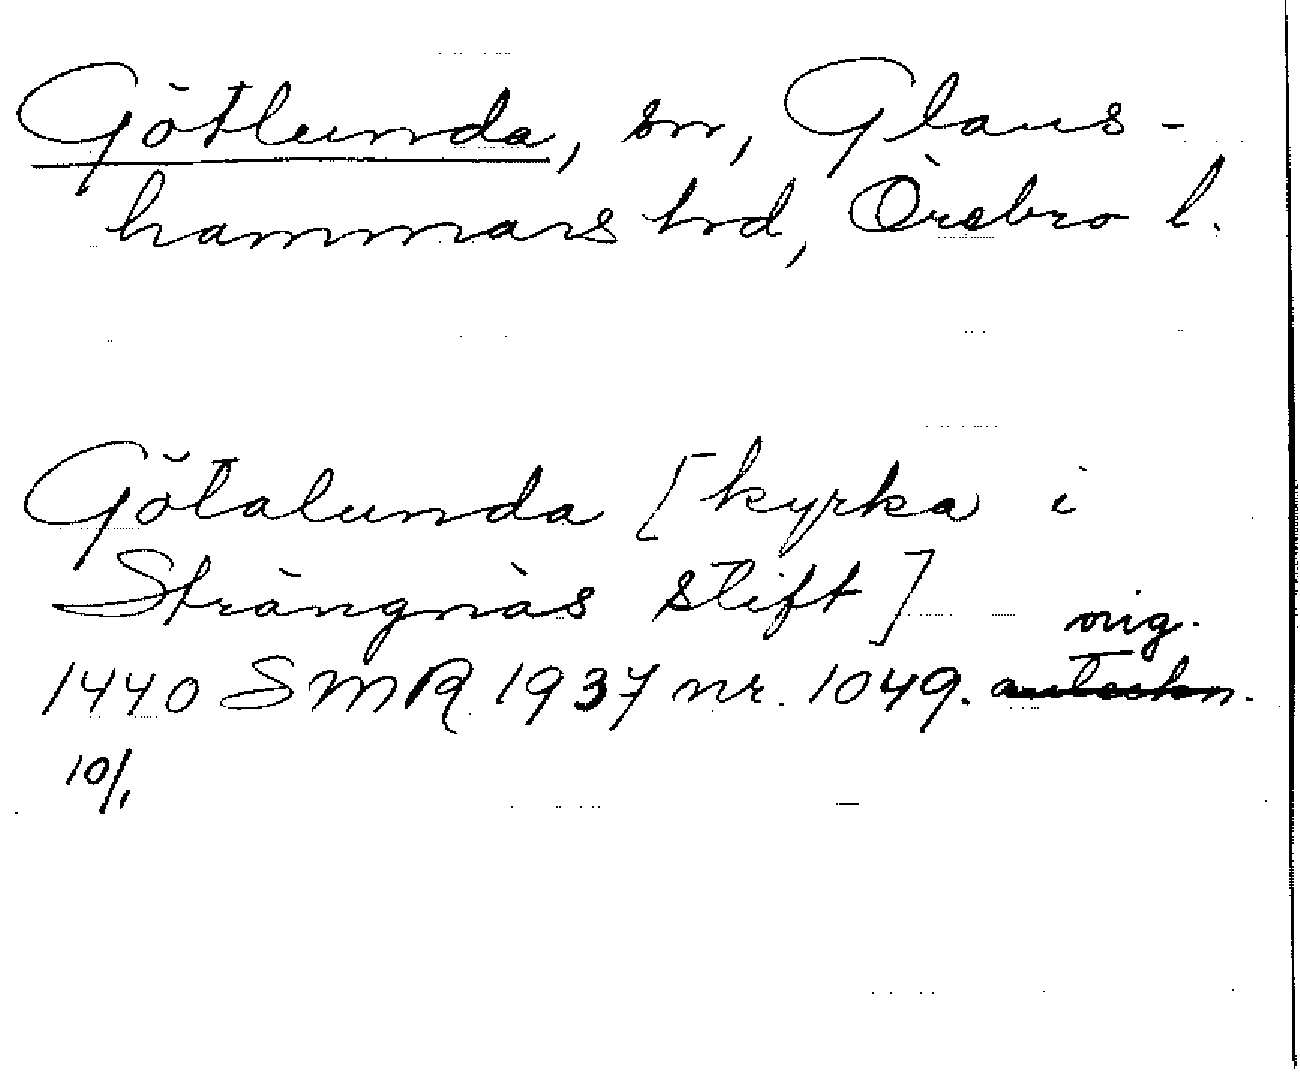 Götlunda, sn, Glans-
hammars hrd, Örebro l.
Götalunda [kyrka i
Strängnäs stift]
orig.
1440 SMR 1937 nr. 1049. anteckn.
10/1